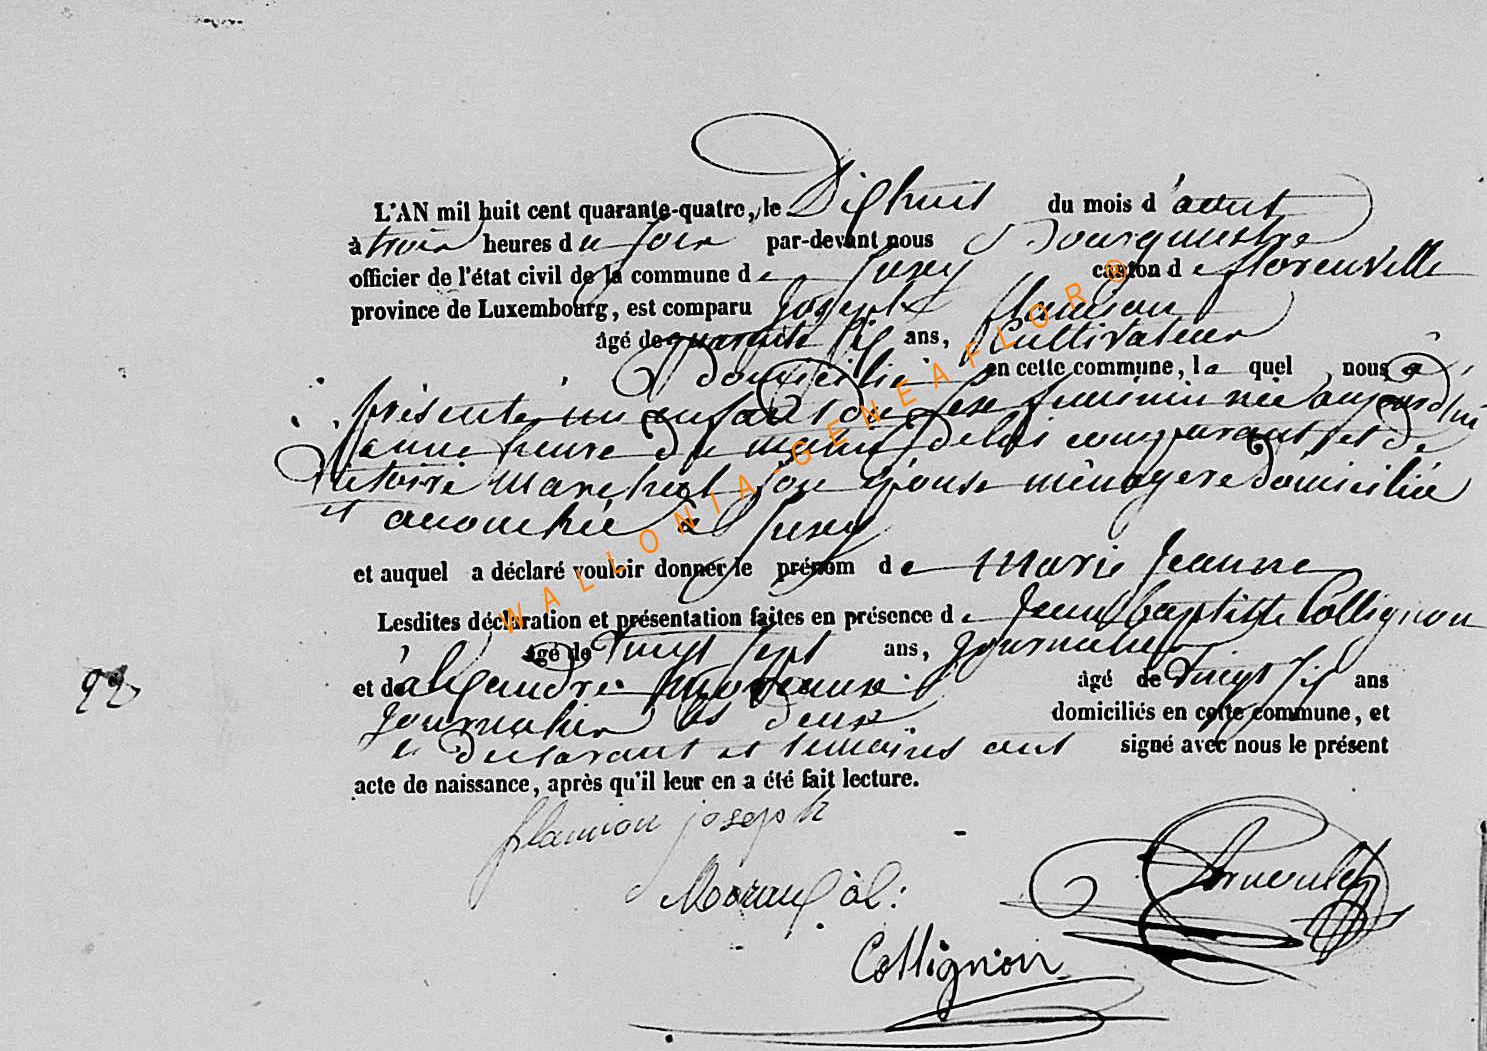 L'AN mil huit cent quarante-quatre, le Dixhuit du mois d'aout
à trois heures du soir par-devant nous Bourgumestre
officier de l'état civil de la commune de canton de florenville
province de Luxembourg, est comparu Joseph flamion
âgé de quarante six ans, Cultivateur
domicilié en cette commune, le quel nous a
présenté un enfant du sexe feminin née aujourd'hui
a une heure du matin de lui comparant et de
victoire marchal son épouse ménagere domiciliée
et accouchée à
et auquel a déclaré vouloir donner le prénom de Marie Jeanne
Lesdites déclaration et présentation faites en présence de Jean baptiste Collignon
âgé de Vingt sept ans, Journalier
et de alexandre moreaux âgé de Vingt six ans
Journalier les deux domiciliés en cette commune, et
le declarant et temoins ont signé avec nous le présent
acte de naissance, après qu'il leur en a été fait lecture.
92
flamion joseph
Moraux al:
Collignon
WALLONIA-GENEAFLOR©